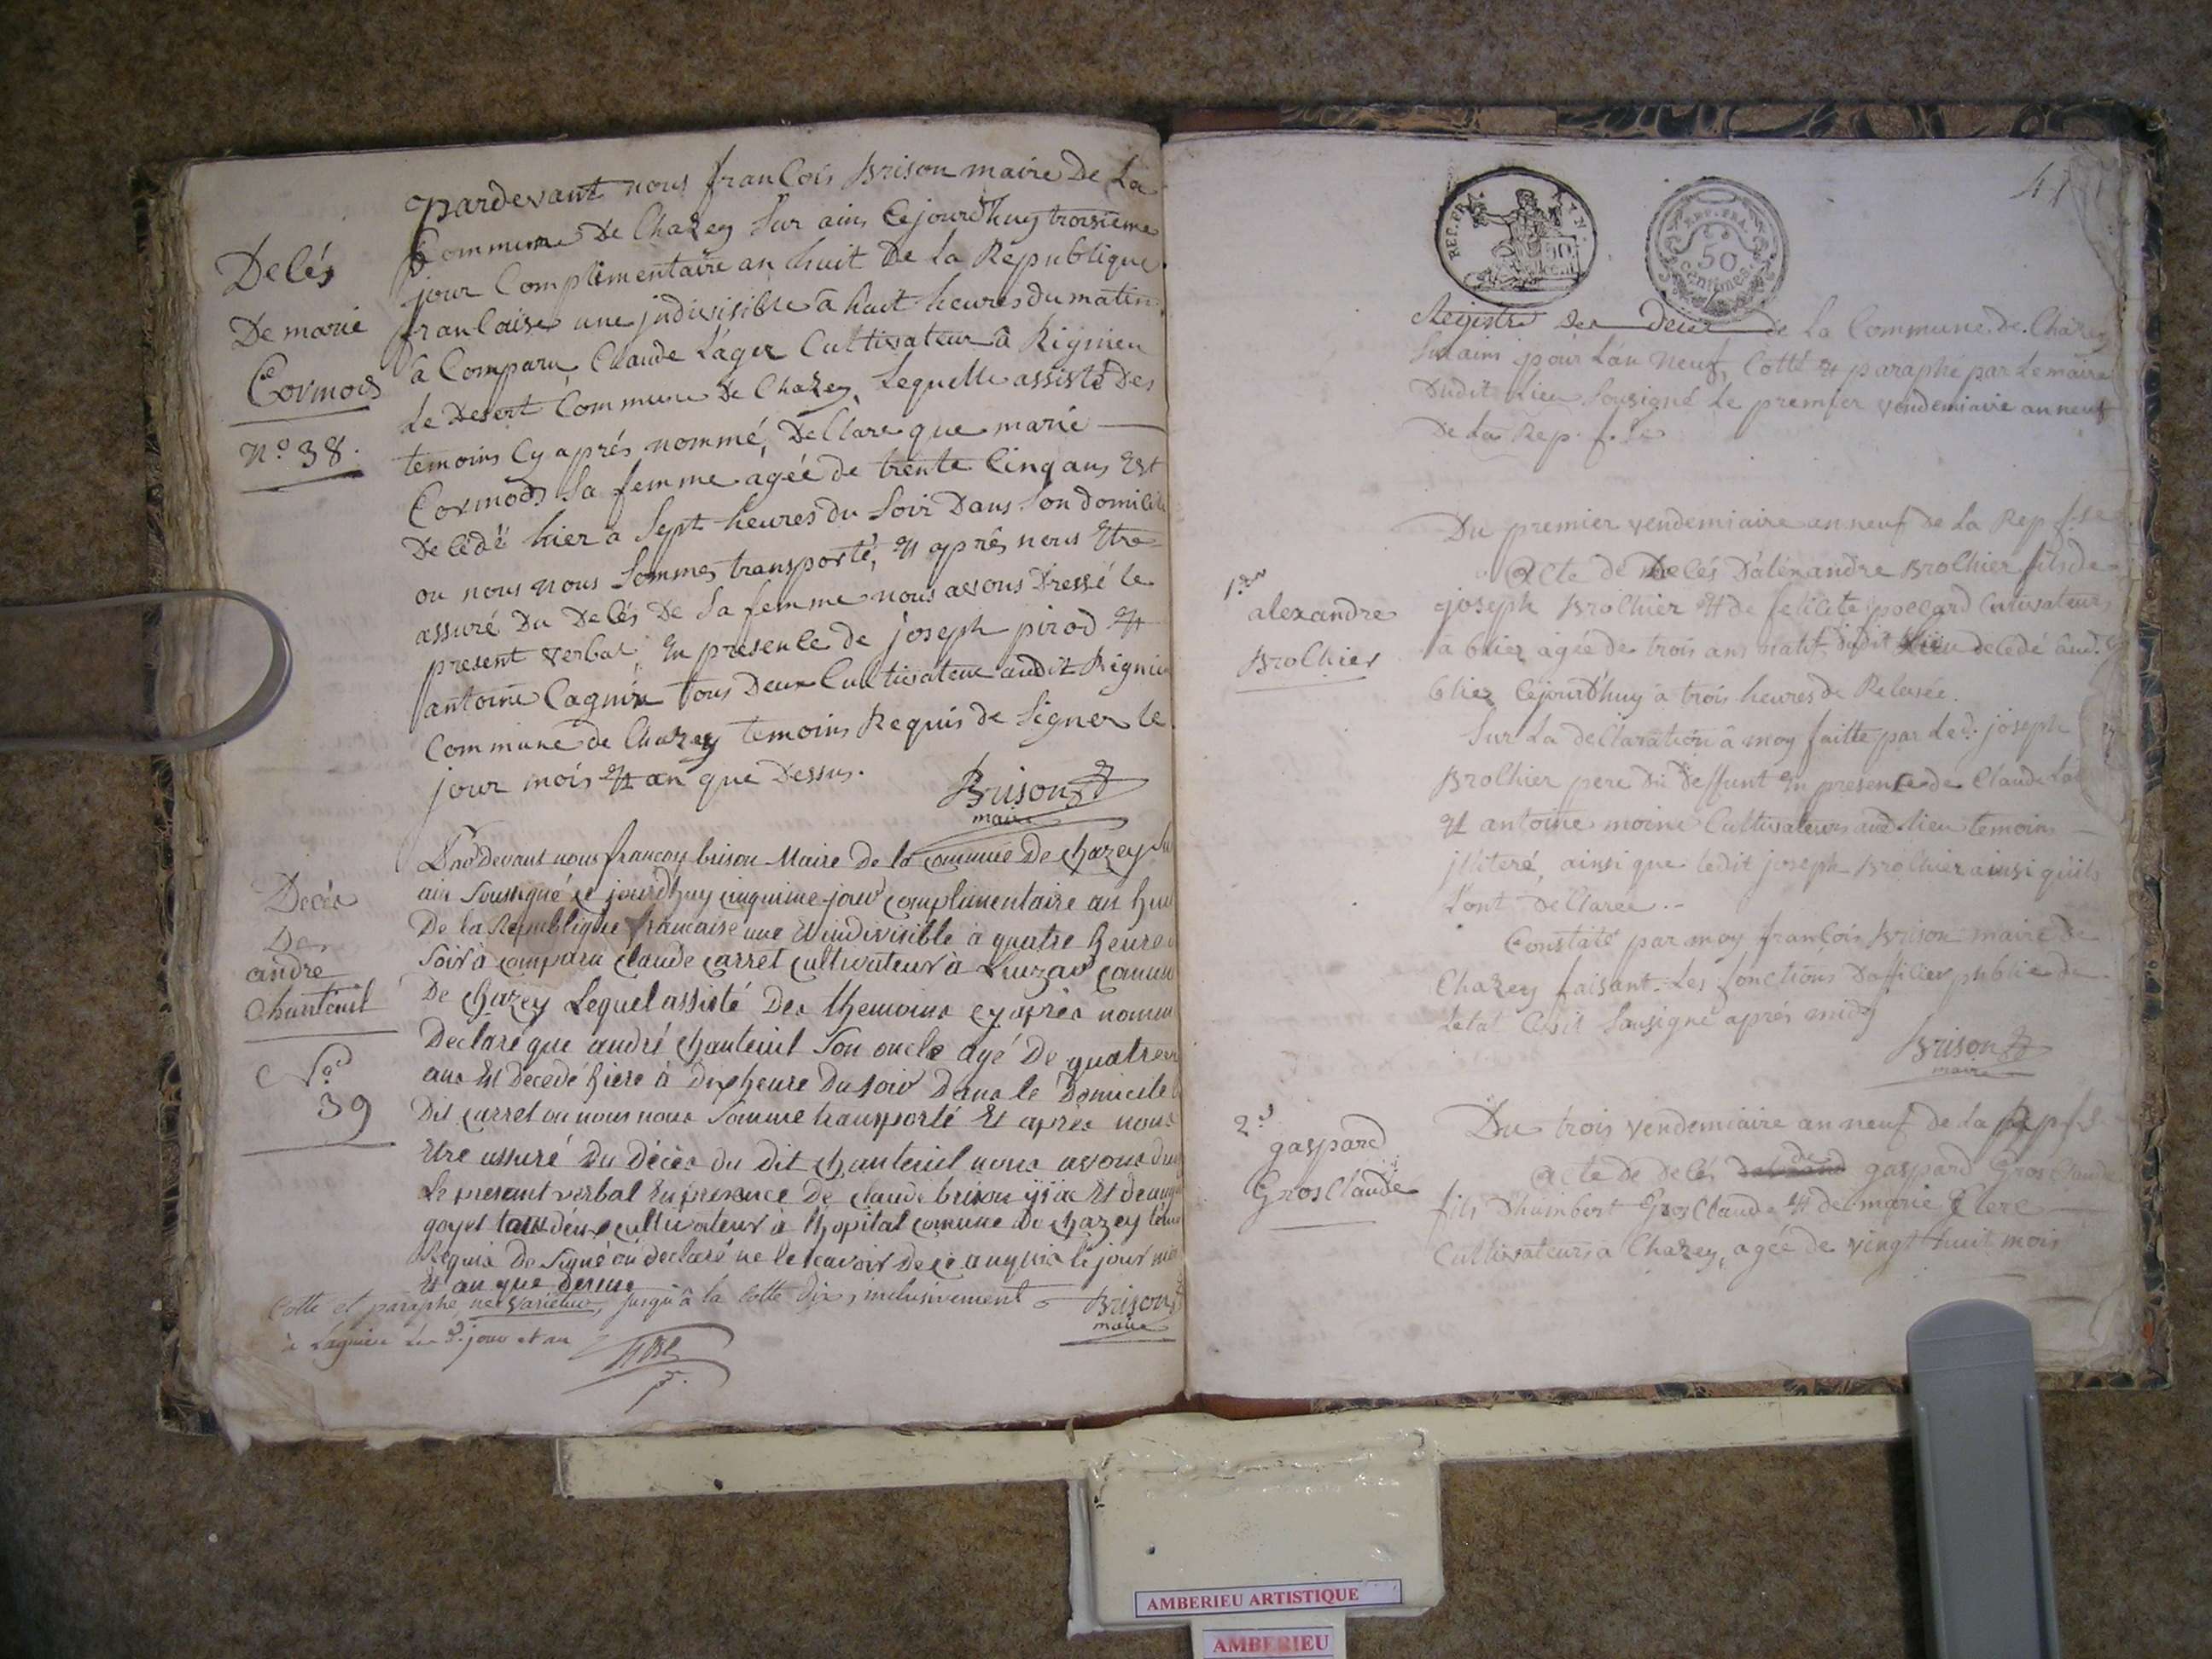 Delés
De marie
Cormods
N.o 38.
pardevant nous franCois Brison maire De La
Commune De Chazey Sur ains Cejourd'huy troisieme
jour Complimentaire an huit De La Republique
franCaise une jndivisible a huit heures du matin
a Comparu Claude Lager Cultivateur à Rignieu
Le Desert Commune De Chazey, Lequelle assisté Des
temoins Cy aprés nommé, DeClare que marie
Cormods Sa femme agée de trente Cinq ans Est
DeCedé hier a Sept heures du Soir Dans Son domicile
ou nous nous Sommes transporté, Et aprés nous Etre
assuré Du DeCés De Sa femme nous avons Dressé le
present verbal, En presenCe de joseph pirod Et
antoine Cagnin tous Deux Cultivateur audit Rignieu
Commune de Chazey temoins Requis de Signer le
jour mois Et an que Dessus.
Brison
maire
Décès
De
andré
Chanteuil
N.o
39
Par Devant nous francoy brison Maire De la commune De chazey
ain Soussigné ce jourdhuy cinquime jour complimentaire an hui
De la Republique francaise une Et indivisible à quatre heure
Soir à comparu claude carret cultivateur à Luizar
De chazey Lequel assisté Des themoins cy après nomm
Declaré que andré chanteuil Son oncle agé De quatre
ans Et Decedé hiere à heure Du soir Dans le Domicile
Dit carret ou nous nous Somme transporté Et après nous
Etre assuré Du Décès du Dit chanteuil nous avons
Le present verbal En presence De claude brison Et de
goyet tous deux cultivateur à lhopital comune De chazey
Requis De Signé on declaré ne le scavoir De ce le jour
Et an que dessus
Brison
maire
Cotte et paraphe ne varietur, jusqu'à la Cotte Dix, inclusivement
à Lagnieu Les d. jour et an
41
REP. FRA.
50
REP. FRA.
50
Centimes.
Registre Des deces de La Commune De Chazey
Sur ains pour L'an Neuf, Cotté Et paraphé par Le maire
Dudit Lieu Sousigné Le premier vendemiaire an neuf
De La Rep. f.se
1.er
alexandre
BrolChier
Du premier vendemiaire an neuf de La Rep f.se
aCte de DeCés D'aléxandre BrolChier fils de
joseph BrolChier Et de feliCité poCCard Cultivateurs
a bliez agée de trois ans natif dudit Lieu deCedé aud.
bliez Cejourd'huy a trois heures de Relevée.
Sur La deClaration a moy faitte par Led. joseph
BrolChier pere Du Deffunt En presenCe de Claude
Et antoine moine Cultivateurs aud. lieu temoins
jlliteré, ainsi que ledit joseph BrolChier ainsi qu'ils
L'ont DeClaree.-
Constaté par moy franCois Brison maire de
Chazey faisant Les fonCtions D'offiCier publiC de
Letat Civil Sousigné aprés midy
Brison
maire
2.d
gaspard
GrosClaude
Du trois vendemiaire an neuf de La Rep f.se
aCte De DeCés de gaspard GrosClaude
fils D'humbert GrosClaude Et de marie Clerc
Cultivateurs a Chazey, agée de vingt huit mois
AMBERIEU ARTISTIQUE
AMBERIEU